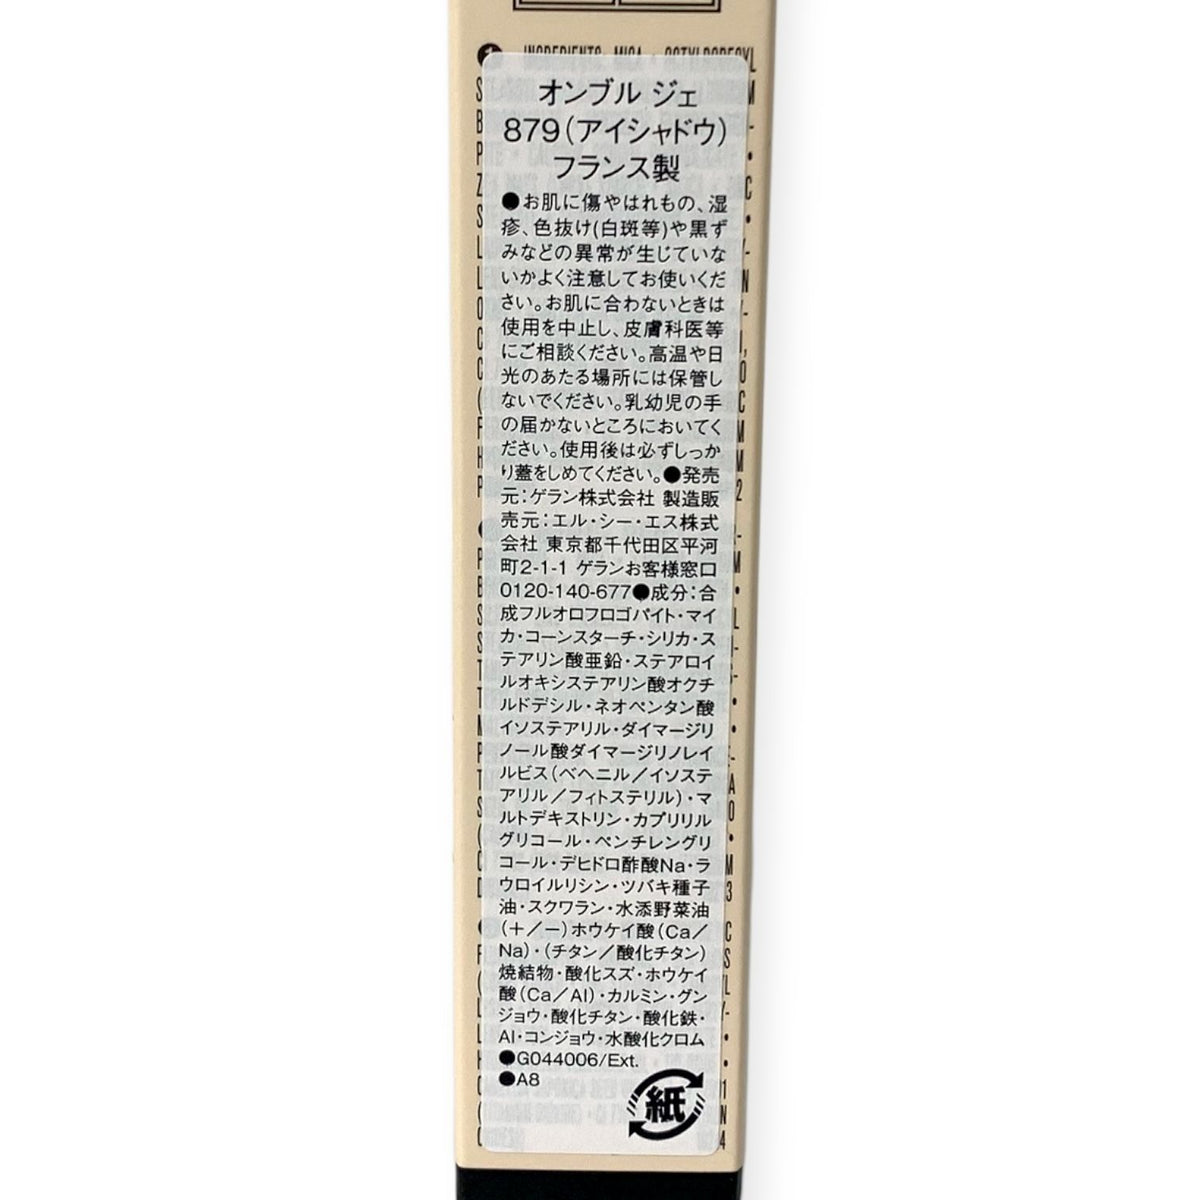 INGREDIENTS
オンブル ジェ
879(アイシャドウ)
フランス製
●お肌に傷やはれもの、湿
疹、色抜け(白斑等)や黒ず
みなどの異常が生じていな
いかよく注意してお使いくだ
さい。お肌に合わないときは
使用を中止し、皮膚科医等
にご相談ください。高温や日
光のあたる場所には保管し
ないでください。乳幼児の手
の届かないところにおいてく
ださい。使用後は必ずしっか
り蓋をしめてください。●発売
元:ゲラン株式会社 製造販
売元:エル・シー・エス株式
会社 東京都千代田区平河
町2-1-1 ゲランお客様窓口
0120-140-677●成分:合
成フルオロフロゴパイト・マイ
カ・コーンスターチ・シリカ・ス
テアリン酸亜鉛・ステアロイ
ルオキシステアリン酸オクチ
ルドデシル・ネオペンタン酸
イソステアリル・ダイマージリ
ノール酸ダイマージリノレイ
ルビス(ベヘニル/イソステ
アリル/フィトステリル)・マ
ルトデキストリン・カプリリル
グリコール・ペンチレングリ
コール・デヒドロ酢酸Na・ラ
ウロイルリシン・ツバキ種子
油・スクワラン・水添野菜油
(+/−)ホウケイ酸(Ca/
Na)・(チタン/酸化チタン)
焼結物・酸化スズ・ホウケイ
酸(Ca/Al)・カルミン・グン
ジョウ・酸化チタン・酸化鉄・
Al・コンジョウ・水酸化クロム
●G044006/Ext.
●A8
紙